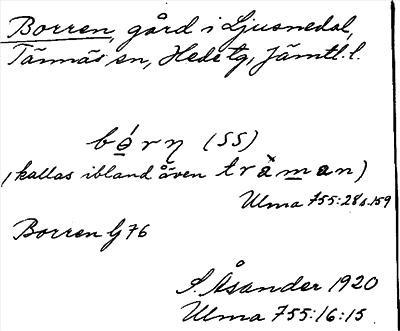 Borren, gård i Ljusnedal,
Tännäs sn, Hede tg, Jämtl. l.
(SS)
(kallas ibland även träman)
Ulma 755:28 s.159
Borren G 76
S. Åsander 1920
Ulma 755:16:15